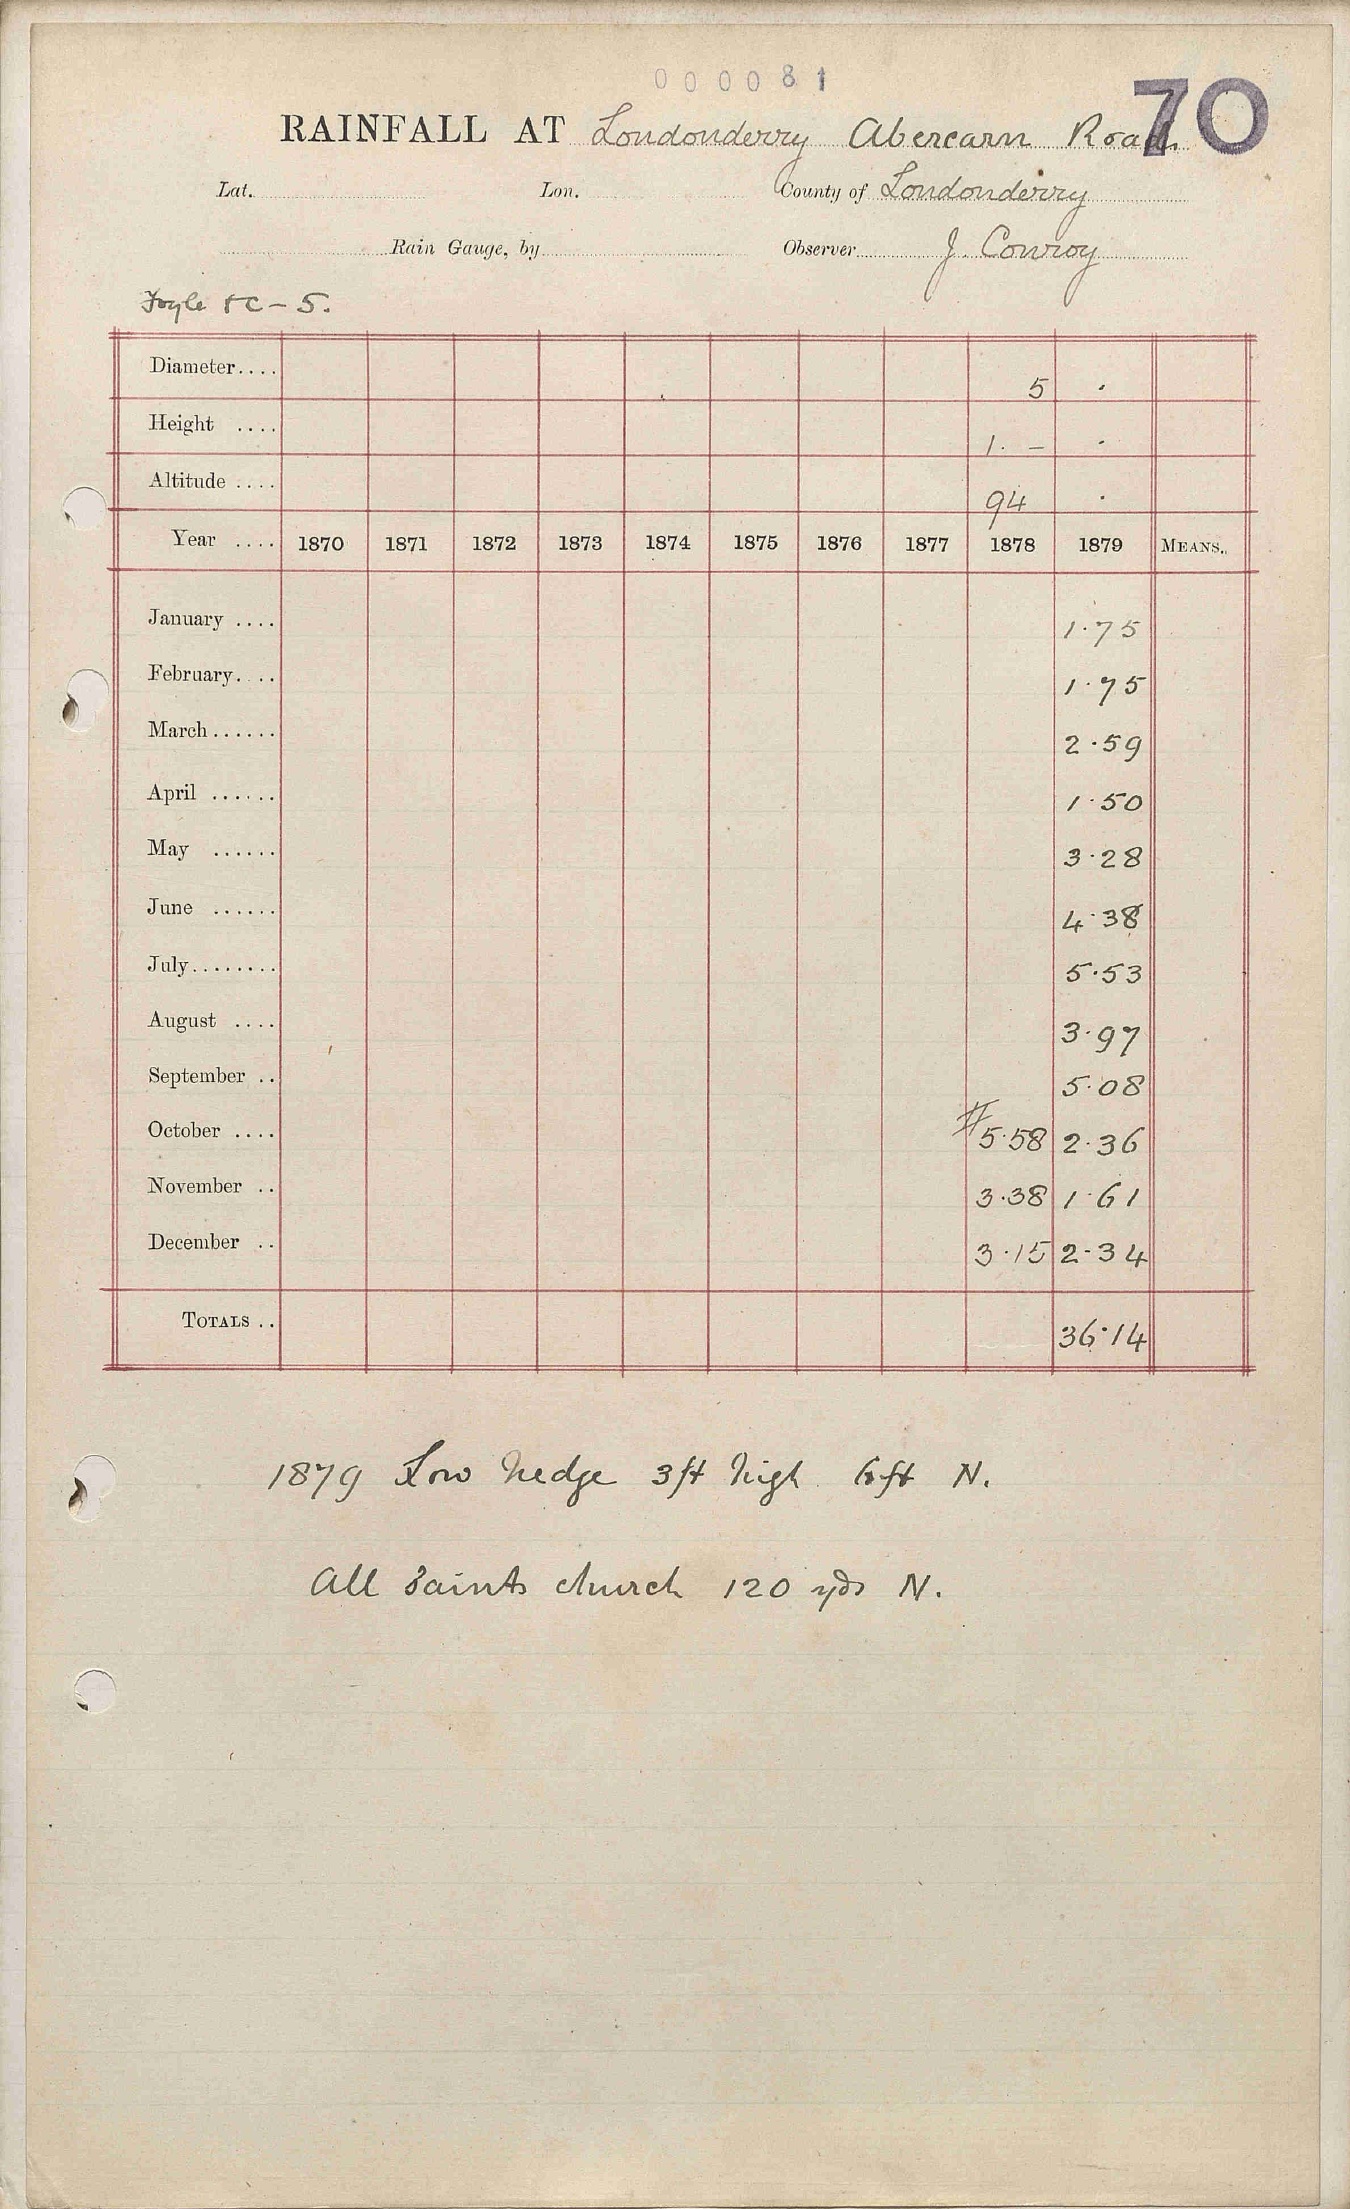 000081
70
RAINFALL AT Londonderry Abercarn Road.
Lat. Lon. County of Londonderry
Rain Gauge, by Observer J. Conroy
Foyle &c - 5.
Diameter.... 5 .
Height .... 1. - .
Altitude .... 94 .
Year .... 1870 1871 1872 1873 1874 1875 1876 1877 1878 1879 MEANS.
January .... 1.75
February.... 1.75
March...... 2.59
April ...... 1.50
May ...... 3.28
June ...... 4.38
July........ 5.53
August .... 3.97
September .. 5.08
October .... #5.58 2.36
November .. 3.38 1.61
December .. 3.15 2.34
TOTALS .. 36.14
1879 Low hedge 3ft high 6ft N.
All Saints church 120 yds N.